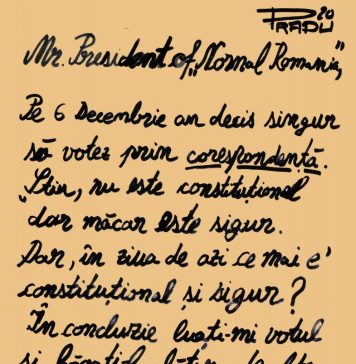 PRADU 20
Mr. President of „Normal Romania”,
Pe 6 Decembrie am decis singur
să votez prin corespondență.
„Știu, nu este constituțional
dar măcar este sigur.
Dar, în ziua de azi ce mai e'
constituțional și sigur?
În concluzie luați-mi votul
și